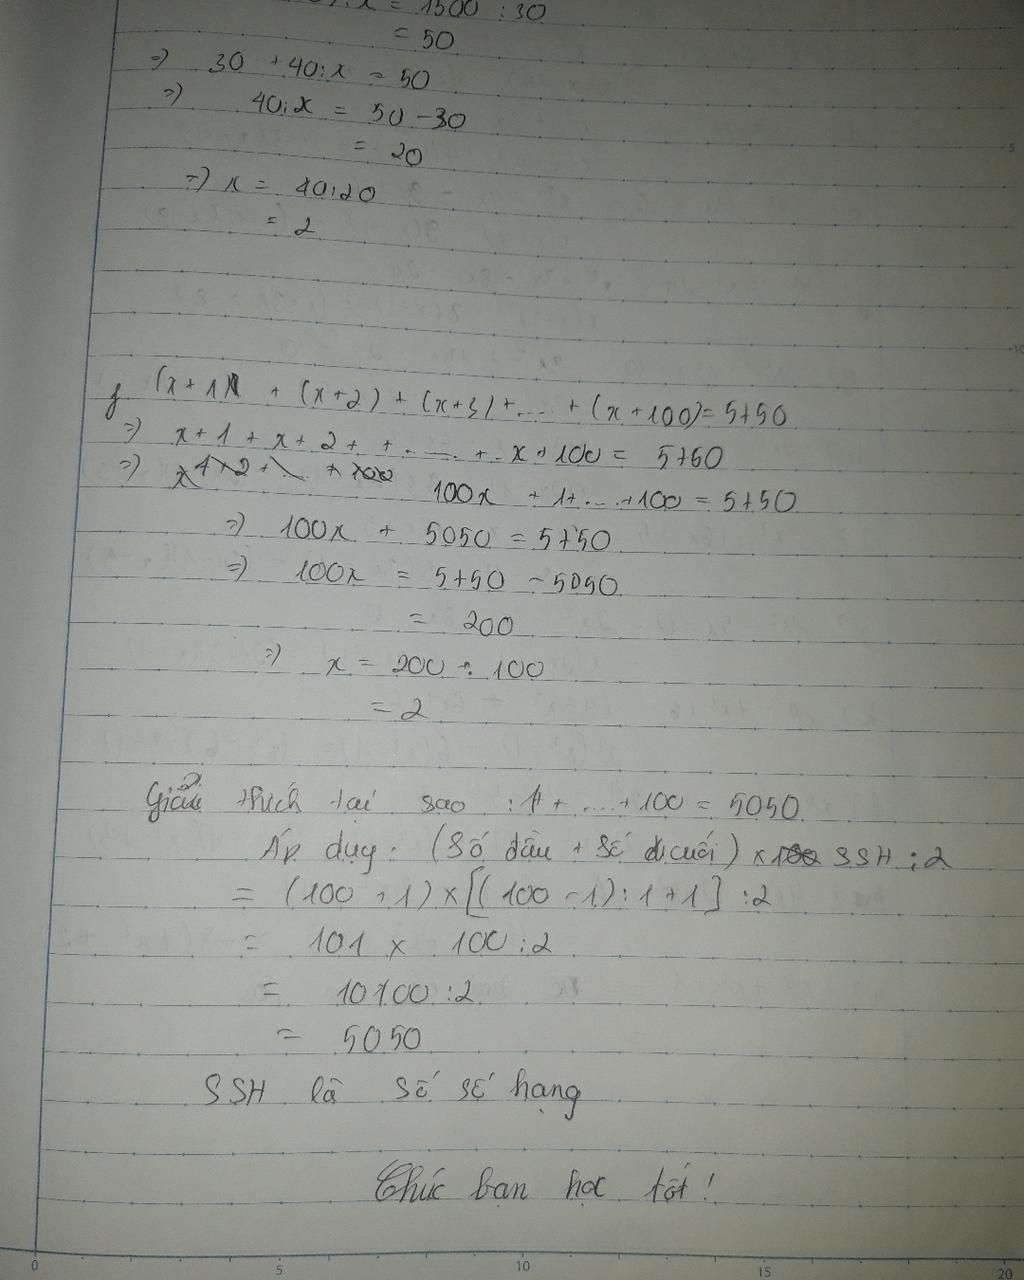 x = 1500 : 30
= 50
=> 30 + 40:x = 50
=> 40:x = 50 - 30
= 20
=> x = 40:20
= 2
f (x + 1) + (x+2) + (x+3) + ... + (x+100) = 5750
=> x+1 + x+2 + + ... + x+100 = 5750
=> 100x + 1+ ... +100 = 5750
=> 100x + 5050 = 5750
=> 100x = 5750 - 5050
= 200
=> x = 200 : 100
= 2
Giải thích tại sao : 1 + ... + 100 = 5050
Áp dụg: (Số đầu + Số cuối) x SSH : 2
= (100 + 1) x [(100 - 1) : 1 + 1] : 2
= 101 x 100 : 2
= 10100 : 2
= 5050
SSH là số số hạng
Chúc bạn học tốt!
0 5 10 15 20
5
10